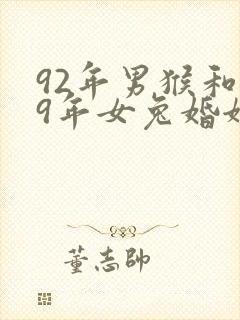 92年男猴和
9年女兔婚姻
董志帥